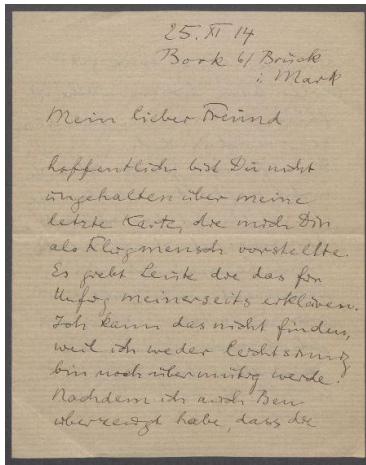 25. XI 14
Bork b/ Brück
i. Mark
Mein lieber Freund
hoffentlich bist Du nicht
ungehalten über meine
letzte Karte, die mich Dir
als Flugmensch vorstellte.
Es giebt Leute die das für
Unfug meinerseits erklären.
Ich kann das nicht finden,
weil ich weder leichtsinnig
bin noch übermütig werde.
Nachdem ich auch Ben
überzeugt habe, dass die